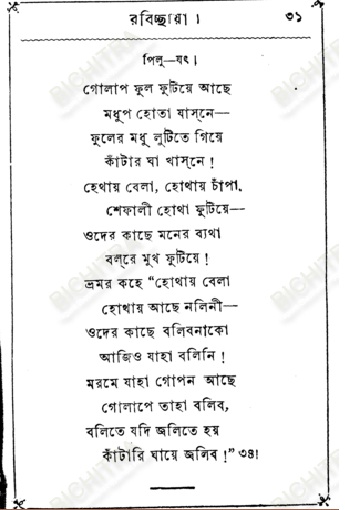 রবিচ্ছায়া। ৩১
পিলু—যৎ।
গোলাপ ফুল ফুটিয়ে আছে
মধুপ হোতা যাস্‌নে—
ফুলের মধু লুটিতে গিয়ে
কাঁটার ঘা খাস্‌নে!
হেথায় বেলা, হোথায় চাঁপা,
শেফালী হোথা ফুটিয়ে—
ওদের কাছে মনের ব্যথা
বল্‌রে মুখ ফুটিয়ে!
ভ্রমর কহে “হোথায় বেলা
হোথায় আছে নলিনী—
ওদের কাছে বলিবনাকো
আজিও যাহা বলিনি!
মরমে যাহা গোপন আছে
গোলাপে তাহা বলিব,
বলিতে যদি জলিতে হয়
কাঁটারি ঘায়ে জলিব!” ৩৪।
BICHITRA